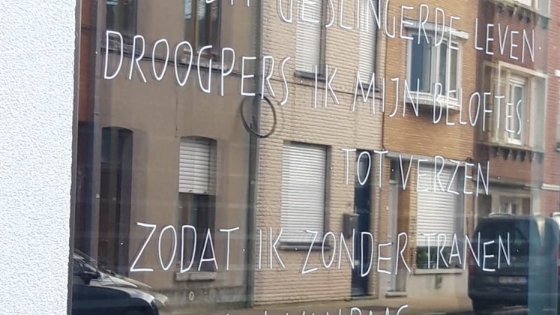 GESLINGERDE LEVEN
DROOGPERS IK MIJN BELOFTES
TOT VERZEN
ZODAT IK ZONDER TRANEN